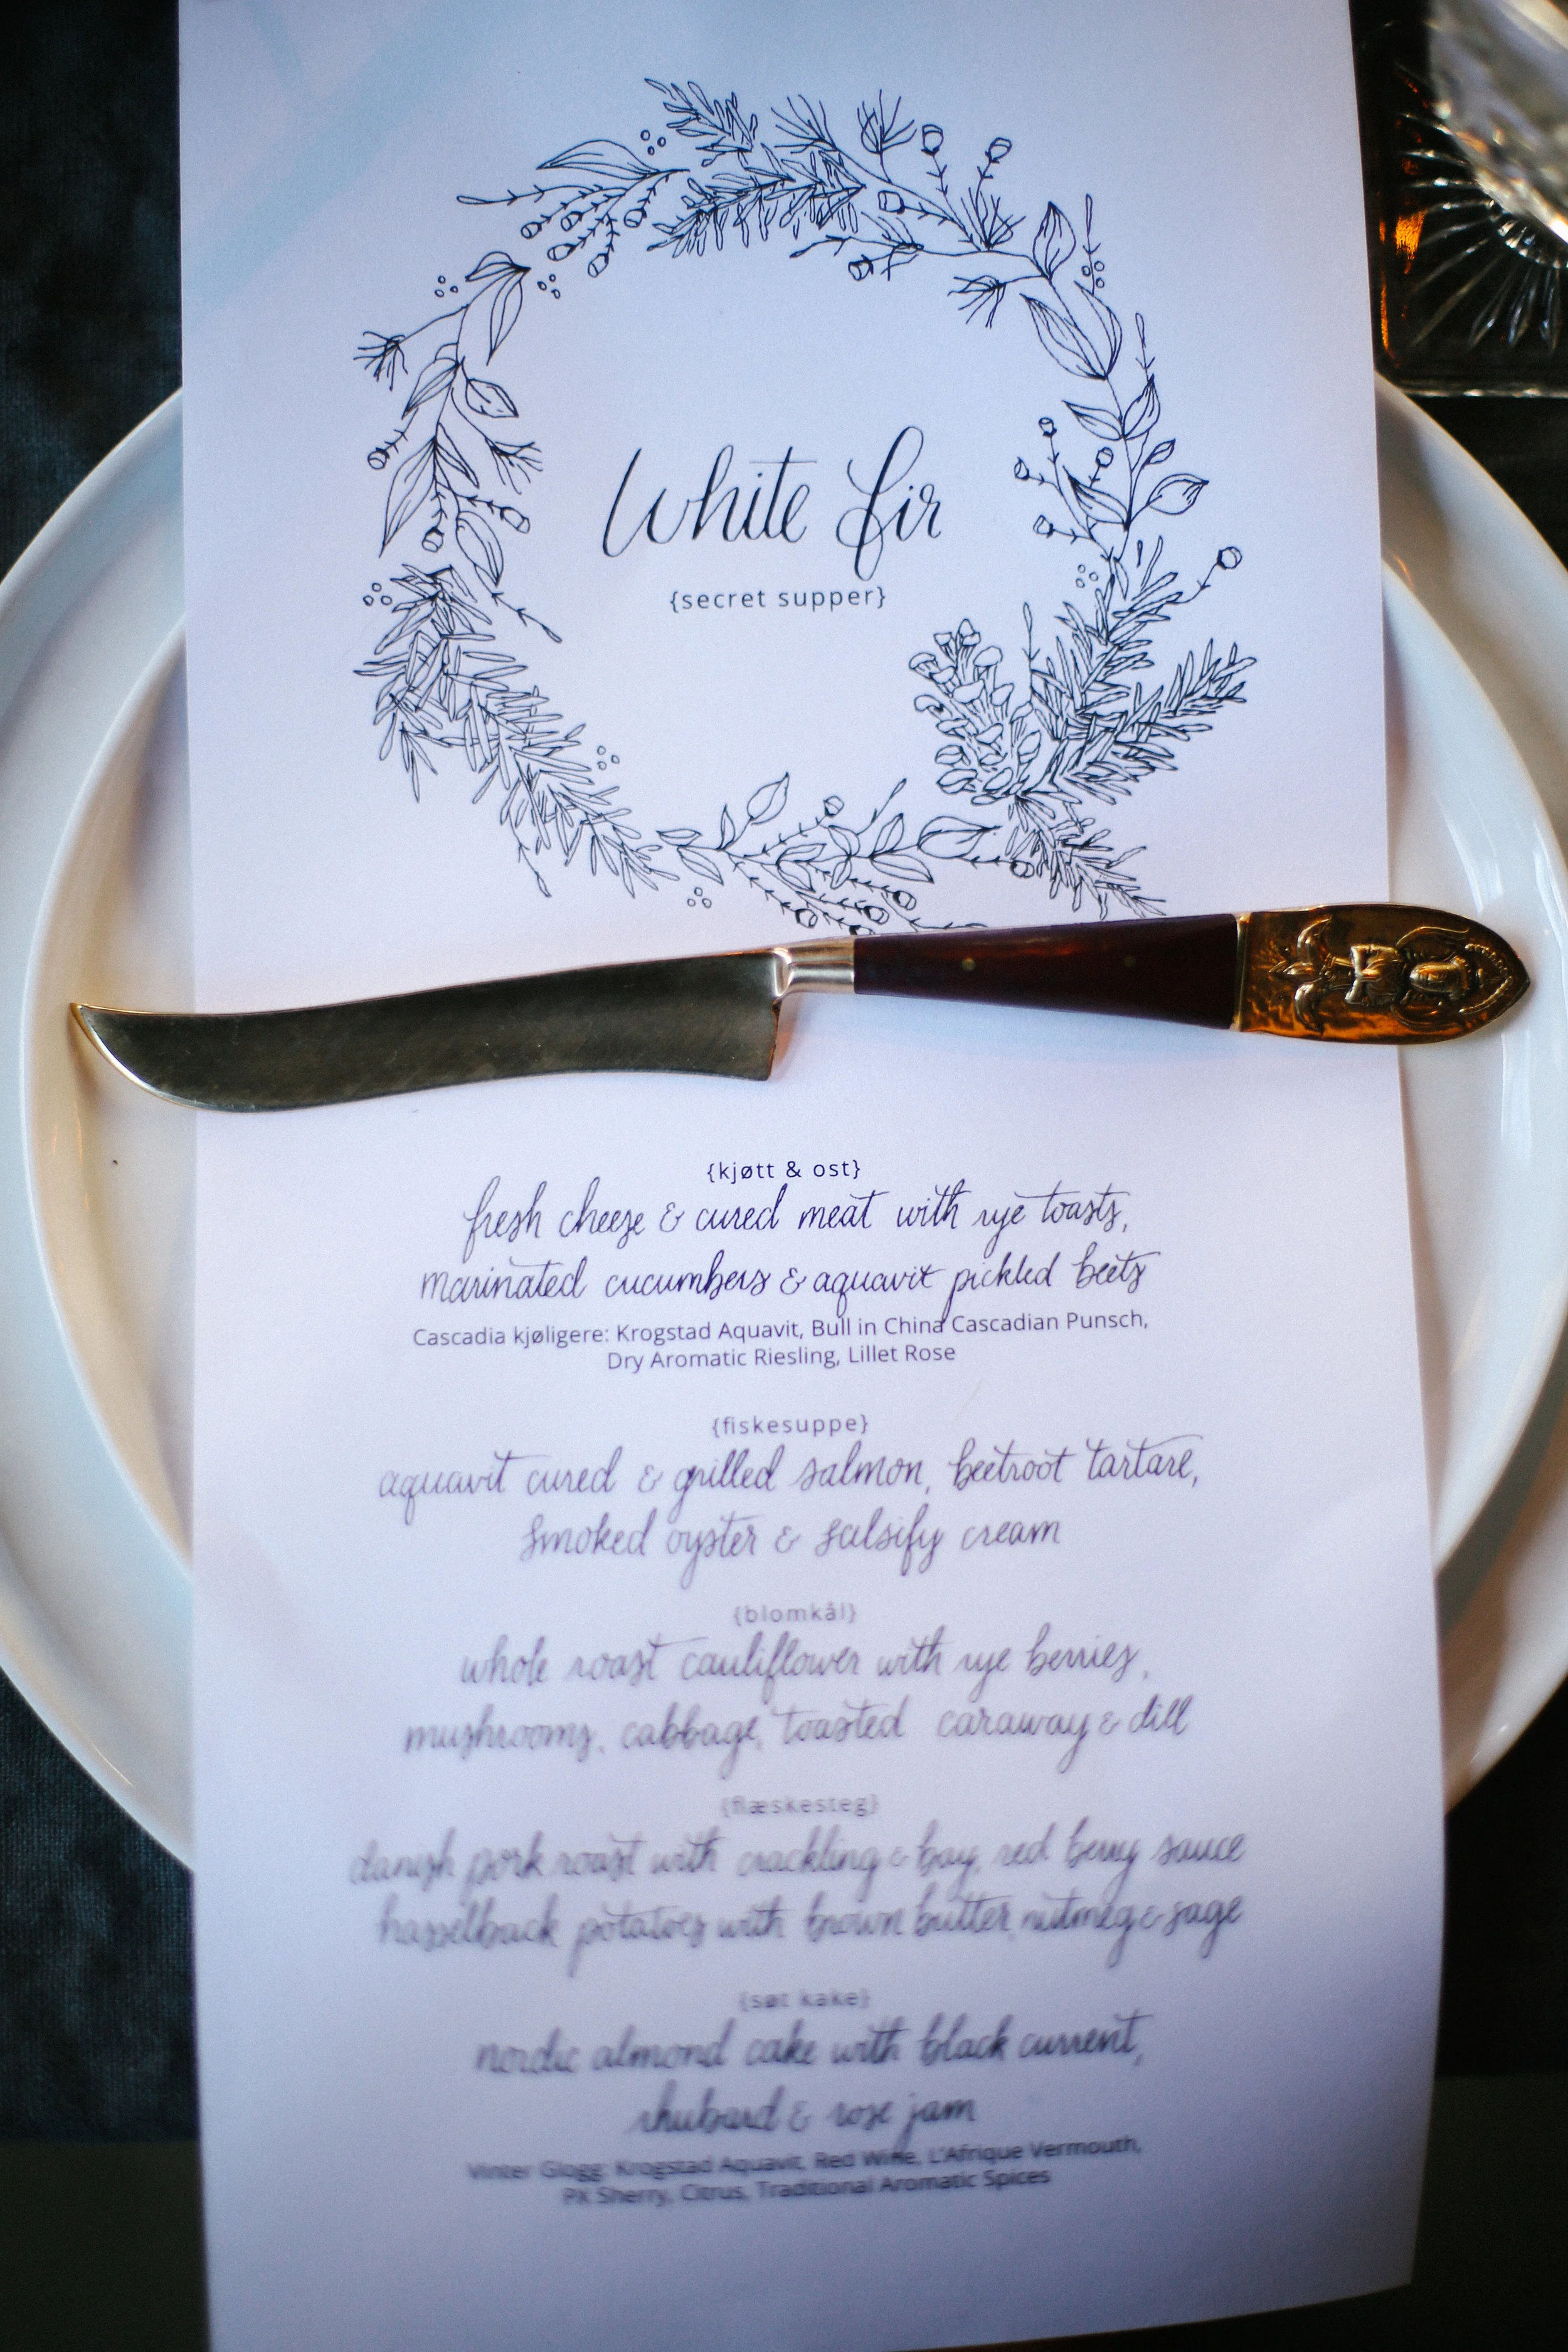 White Fir
{secret supper}
{kjøtt & ost}
fresh cheese & cured meat with rye toasts,
marinated cucumbers & aquavit pickled beets
Cascadia kjøligere: Krogstad Aquavit, Bull in China Cascadian Punsch,
Dry Aromatic Riesling, Lillet Rose
{fiskesuppe}
aquavit cured & grilled salmon, beetroot tartare,
smoked oyster & salsify cream
{blomkål}
whole roast cauliflower with rye berries,
mushrooms, cabbage, toasted caraway & dill
{flæskesteg}
danish pork roast with crackling & bay, red berry sauce
hasselback potatoes with brown butter, nutmeg & sage
{søt kake}
nordic almond cake with black current,
rhubarb & rose jam
Vinter Glogg: Krogstad Aquavit, Red Wine, L'Afrique Vermouth,
PX Sherry, Citrus, Traditional Aromatic Spices